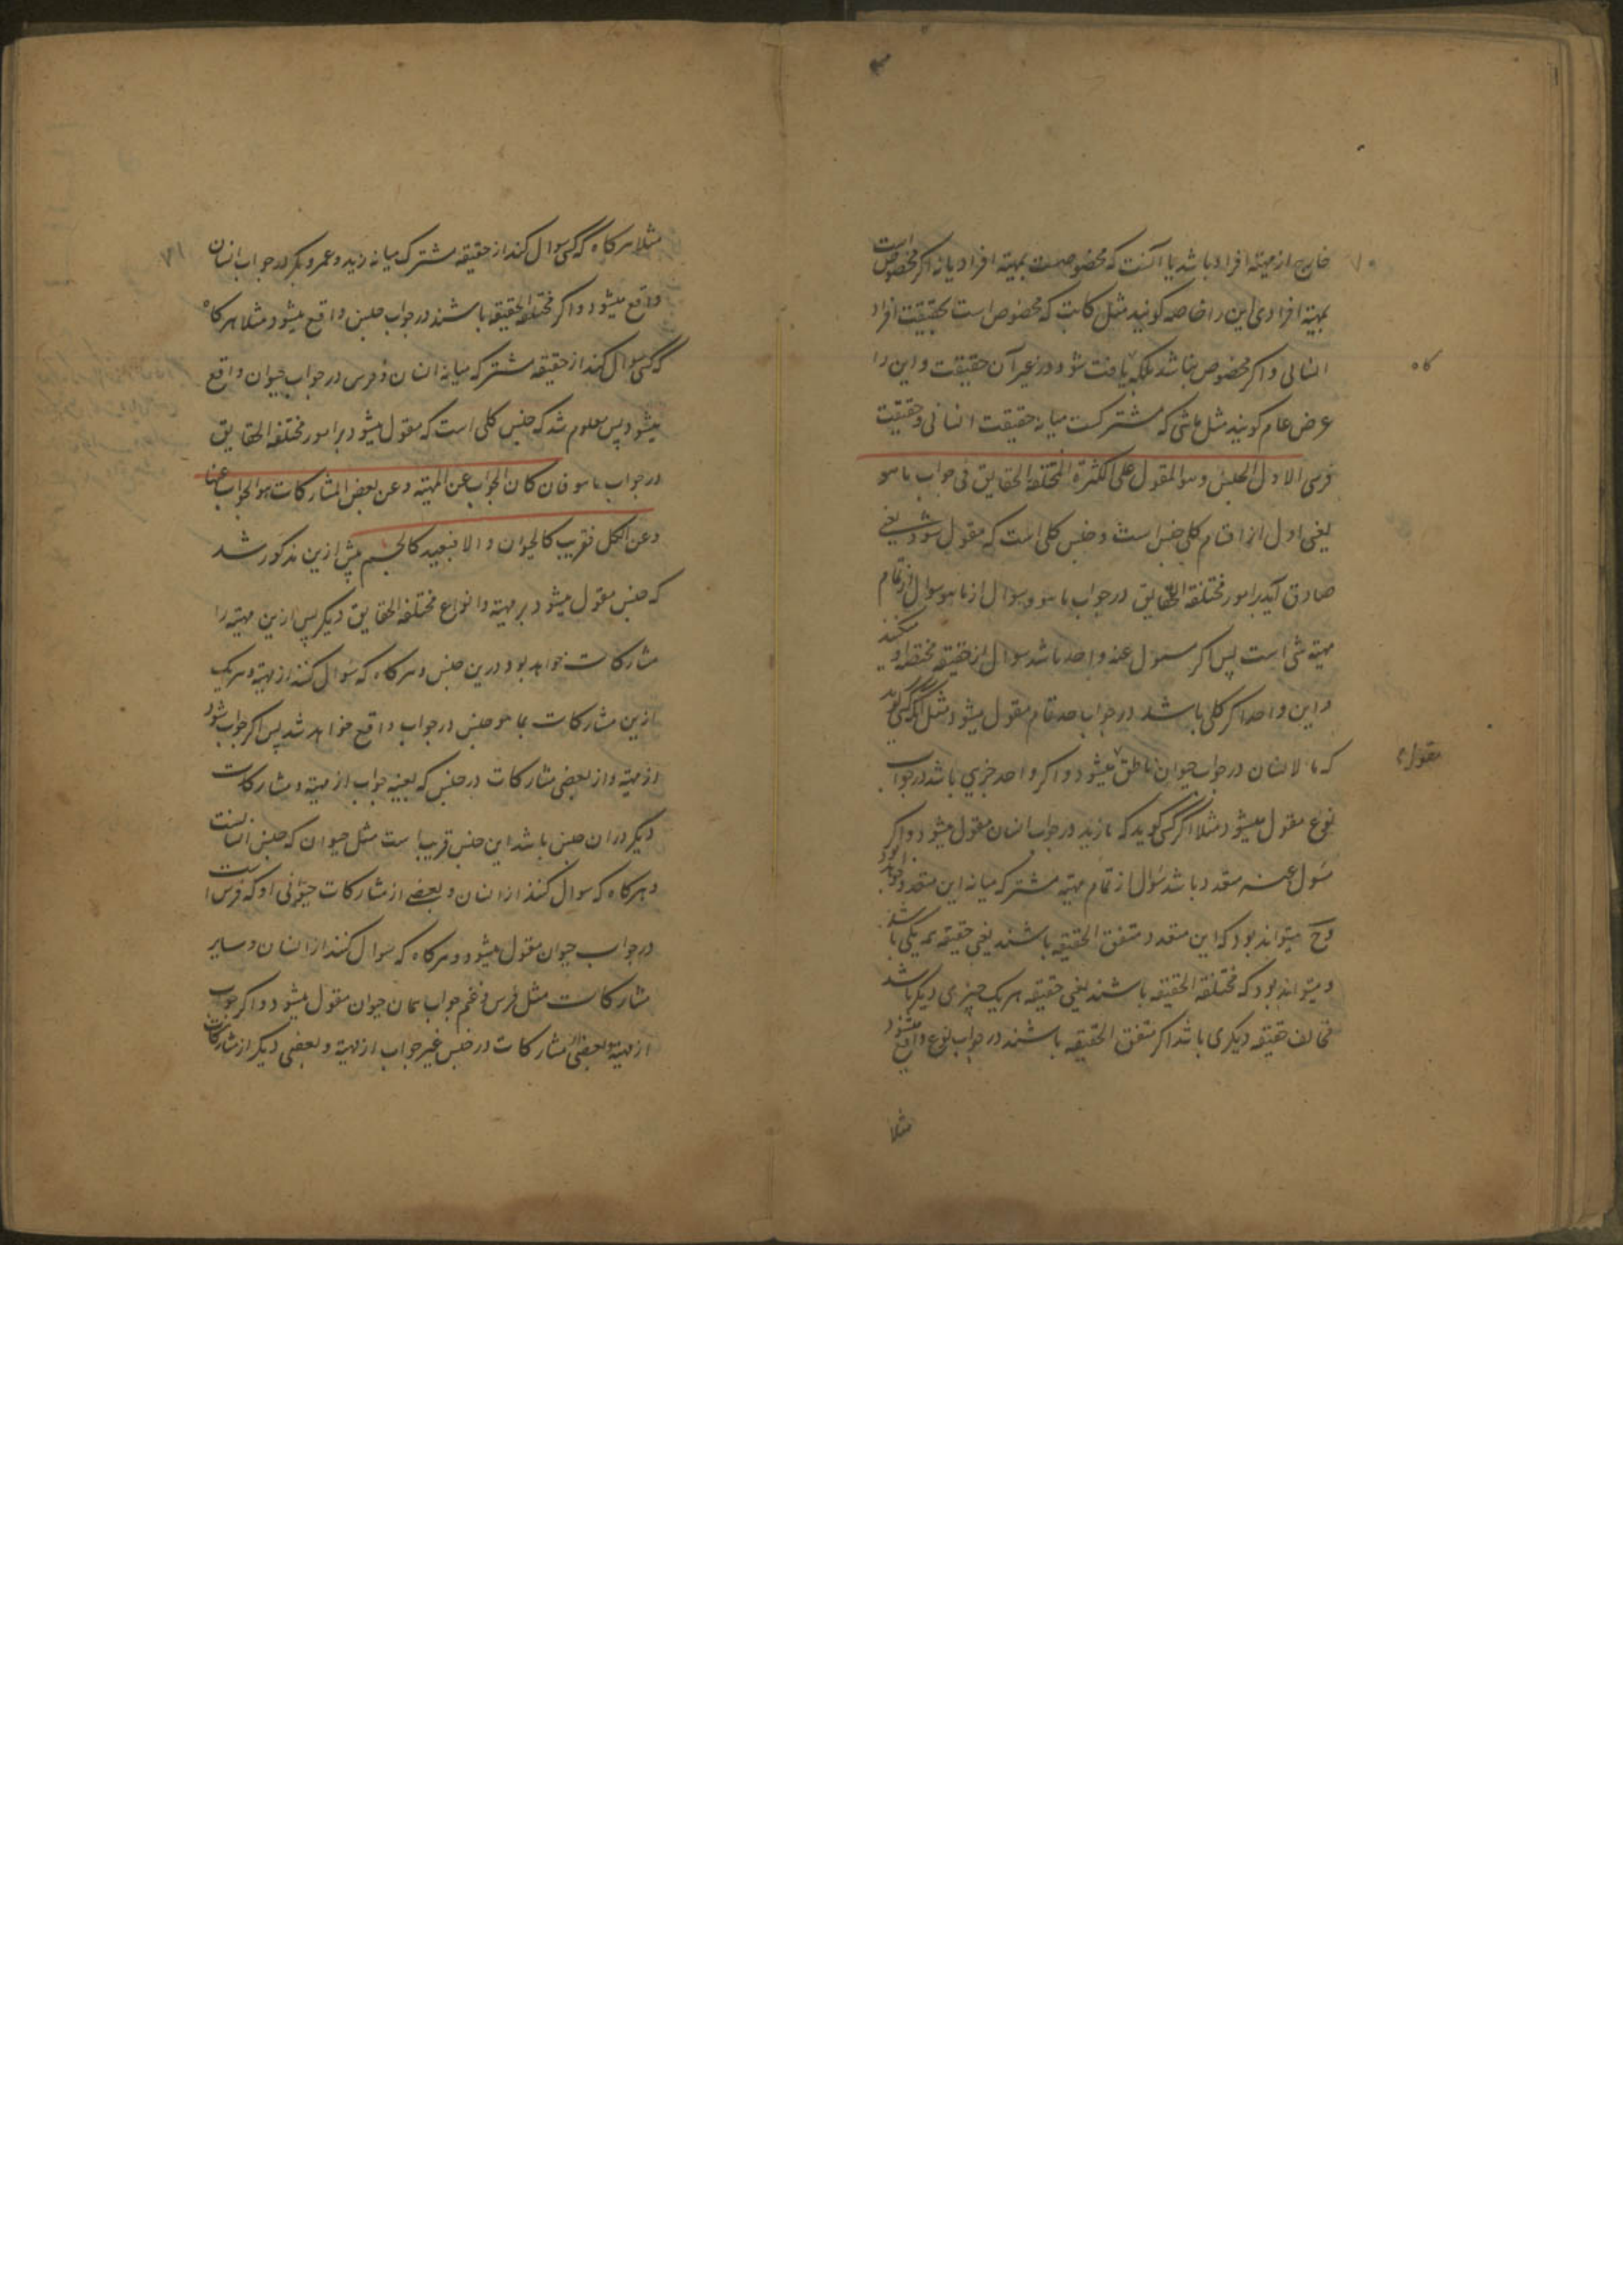 ۷۰
خارج از مهیته افراد باشد یا آنست که مخصوصست بمهیته افراد یا نه اگر مخصوص است
بمهیته افرادی این را خاصه گویند مثل کاتب که مخصوص است بحقیقت افراد
انسانی و اگر مخصوص نباشد بلکه یافت شود در غیر آن حقیقت و این را
کاه
عرض عام گویند مثل ماشی که مشترکست میانه حقیقت انسانی و حقیقت
فرسی الاول الجنس و هو المقول علی الکثرة المختلفة الحقایق فی جواب ما هو
یعنی اول از اقسام کلی جنس است و جنس کلی است که مقول شود یعنی
صادق آید بر امور مختلفة الحقایق در جواب ما هو و سوال از ما هو سوال از تمام
مهیته شی است پس اگر مسول عنه واحد باشد سوال از حقیقه مختصه او میکنند
و این واحد اگر کلی باشد در جواب حد تمام مقول میشود مثل اگر کسی گوید
که ما الانسان در جواب حیوان ناطق میشود و اگر واحد جزیی باشد در جواب
مقول
نوع مقول میشود مثلا اگر کسی گوید که ما زید در جواب انسان مقول میشود و اگر
مسول عنه متعدد باشد سوال از تمام مهیته مشترکه میانه این متعدد خواهد بود
وح میتواند بود که این متعدد متفق الحقیقه باشند یعنی حقیقه همه یکی باشد
و میتواند بود که مختلفة الحقیقه باشند یعنی حقیقه هر یک چیزی دیگر باشد
مخالف حقیقه دیگری باشد اگر متفق الحقیقه باشند در جواب نوع واقع میشود
مثلا
۷۱
مثلا هر کاه که کسی سوال کند از حقیقه مشترک میانه زید و عمرو و بکر در جواب انسان
واقع میشود و اگر مختلفة الحقیقه باشند در جواب جنس واقع میشود مثلا هر کاه
که کسی سوال کند از حقیقه مشترکه میانه انسان و فرس در جواب حیوان واقع
میشود پس معلوم شد که جنس کلی است که مقول میشود بر امور مختلفة الحقایق
در جواب ما هو فان کان الجواب عن المهیته و عن بعض المشارکات هو الجواب عنها
و عن الکل فقریب کالحیوان و الا فبعید کالجسم پیش ازین مذکور شد
که جنس مقول میشود بر مهیته و انواع مختلفة الحقایق دیگر پس ازین مهیته را
مشارکات خواهد بود درین جنس و هر کاه که سوال کنند از مهیته و هر یک
ازین مشارکات بما هو جنس در جواب واقع خواهد شد پس اگر جواب شود
از مهیته و از بعضی مشارکات در جنس که بعینه جواب از مهیته و مشارکات
دیگر در ان جنس باشد این جنس قریب است مثل حیوان که جنس انسانست
و هر کاه که سوال کنند از انسان و بعضی از مشارکات حیوانی او که فرس است
در جواب حیوان مقول میشود و هر کاه که سوال کنند از انسان و سایر
مشارکات مثل فرس و غنم جواب همان حیوان مقول میشود و اگر جواب
از مهیته و بعضی از مشارکات در جنس غیر جواب از مهیته و بعضی دیگر از مشارکات